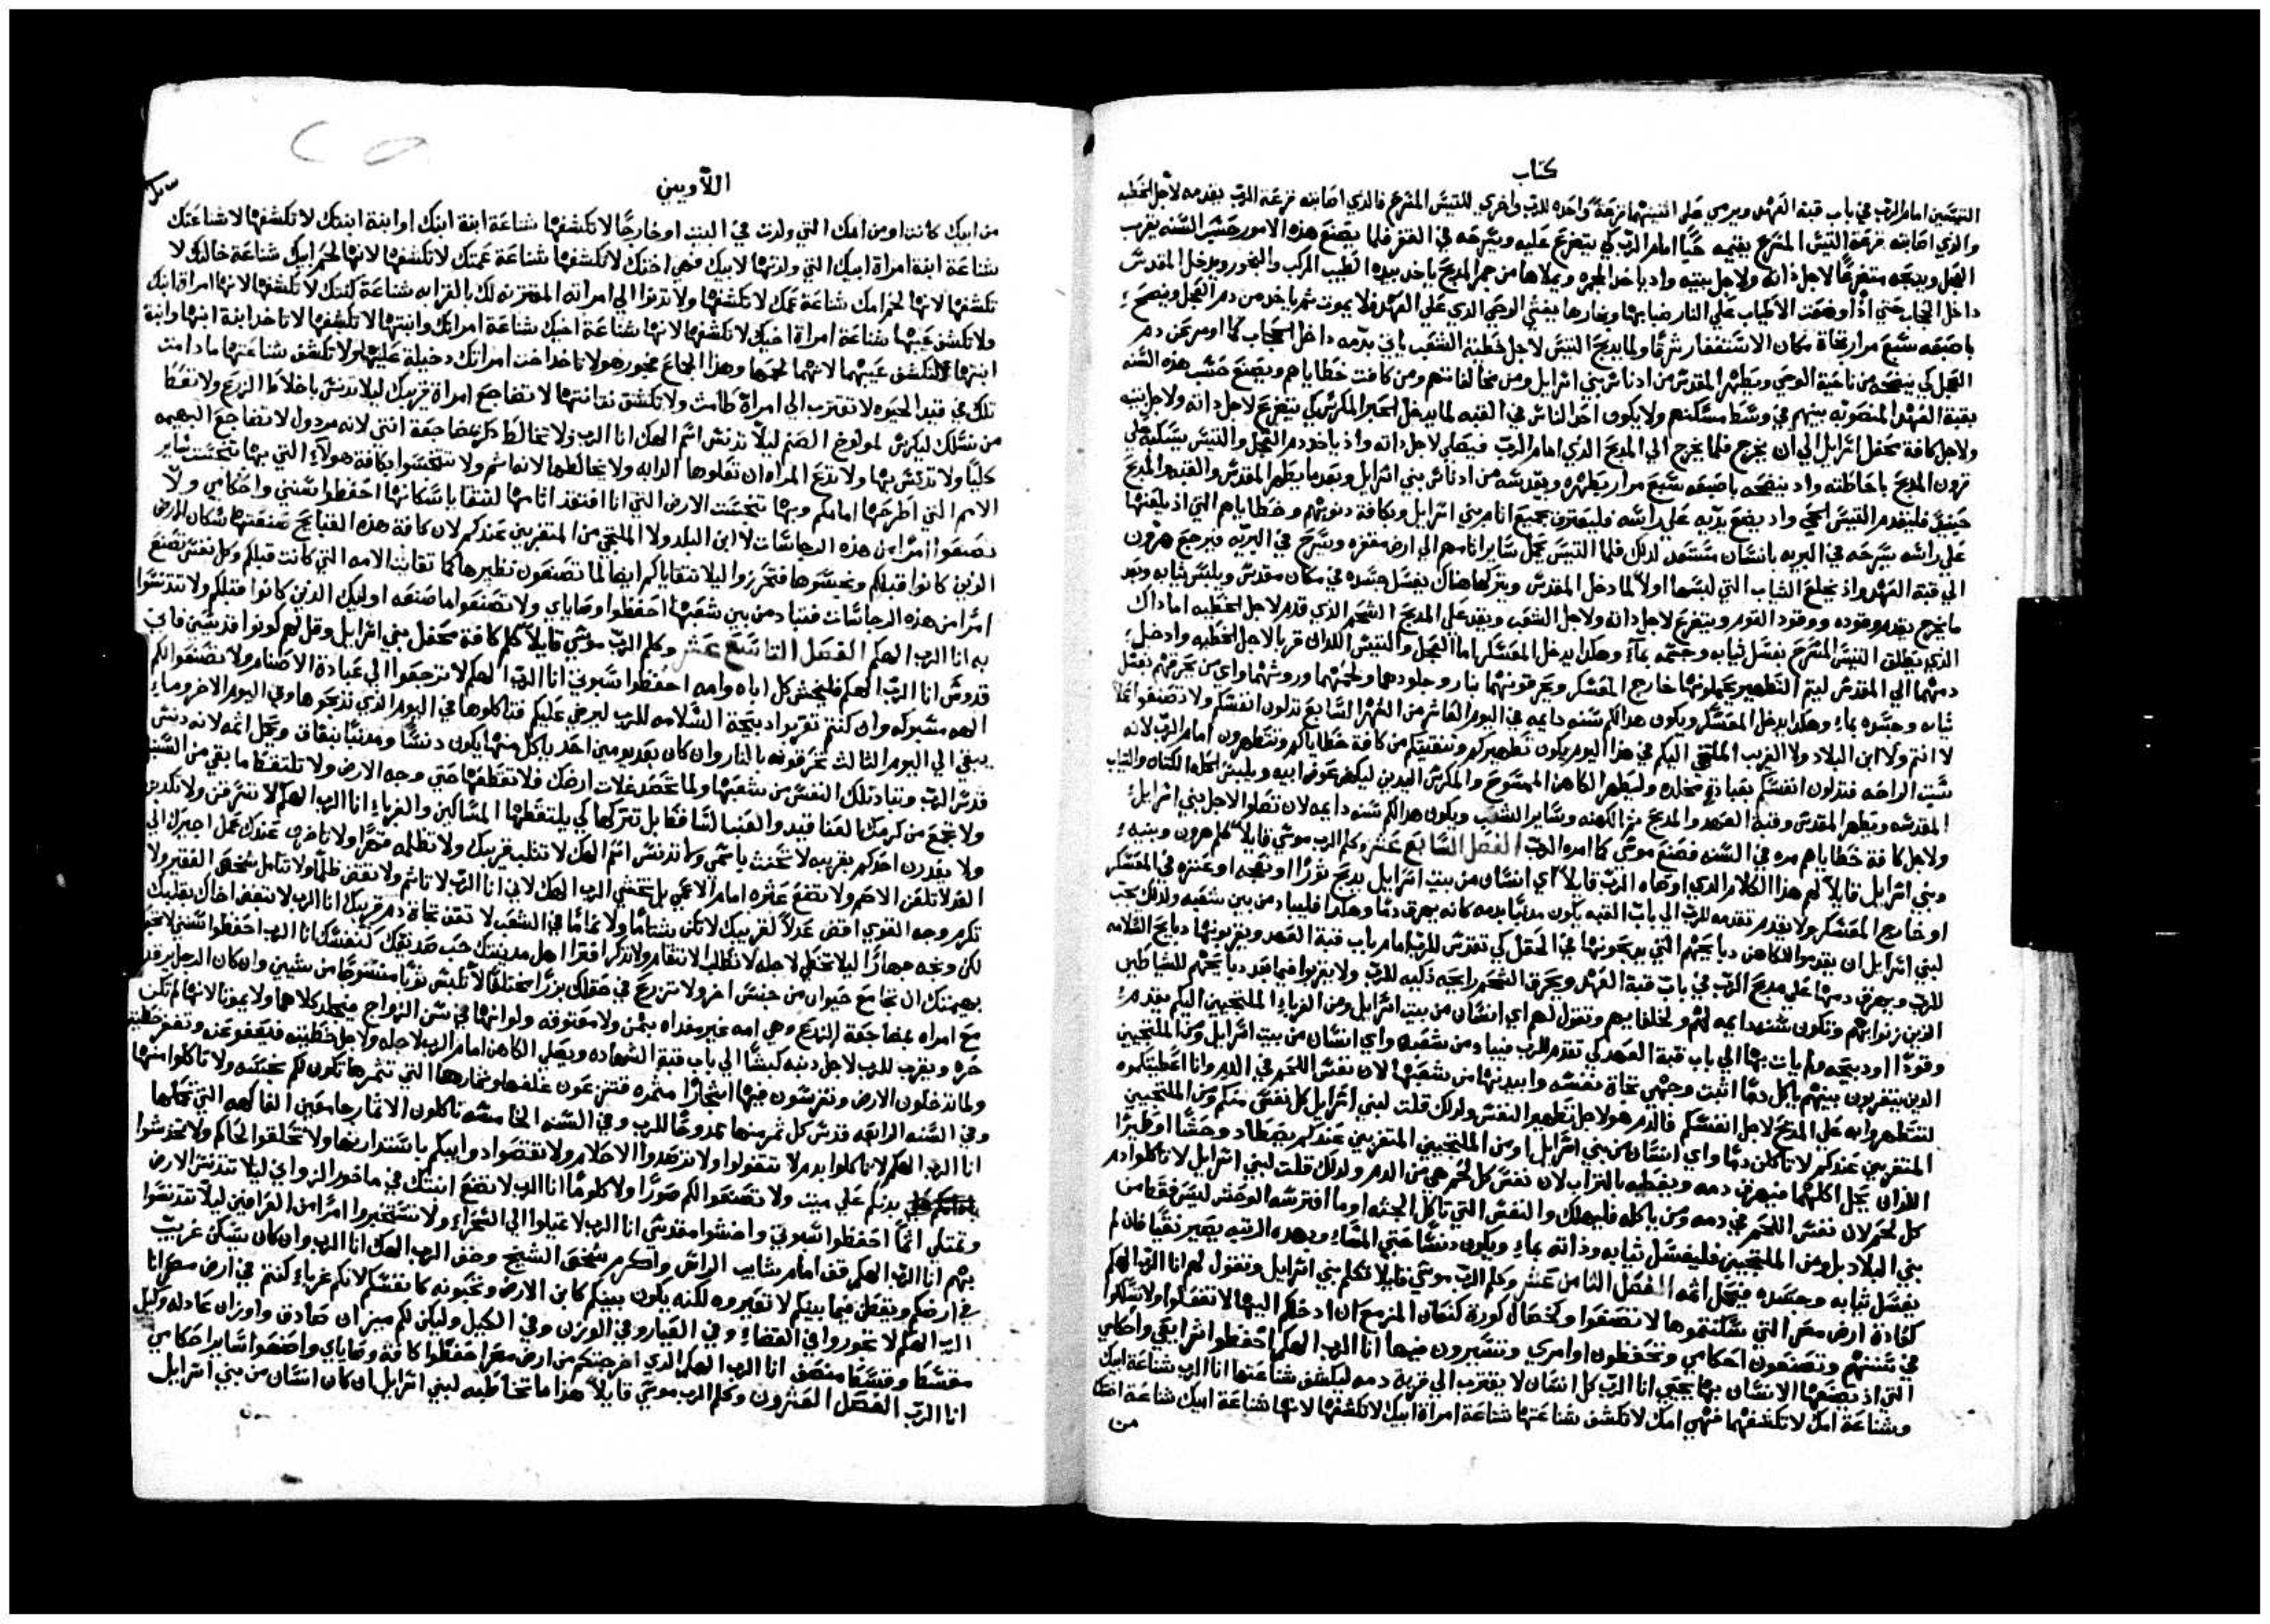 كتاب
التيسين امام الرب في باب قبة العهد ويرمي على اثنيهما قرعة واحده للرب واخري للتيس المتبرح فالذي اصابته قرعة الرب يقدمه لاجل الخطيه
والذي اصابته قرعة التيس يقيمه حيا امام الرب كي يتضرع عليه ويسرحه في القفر فلما يصنع هذه الامور
العجل ويذبحه متضرعا لاجل ذاته ولاجل بيته واذ ياخذ المجمره ويملاها من جمر المذبح ياخذ بيده الطيب المركب والبخور ويدخل المقدس
داخل الحجاب حتي اذا وضعت الاطياب علي النار ضبابها وبخارها يغشي الوحي الذي علي العهد فلا يموت ثم ياخذ من دم العجل وينضح
باصبعه سبع مرار تجاة مكان الاستغفار شرقا ولما يذبح التيس لاجل خطية الشعب ياتي بدمه داخل الحجاب كما اومر عن دم
العجل كي ينضحه من ناحية الوحي ويطهر المقدس من ادناس بني اسرايل ومن مخالفاتهم ومن كافت خطاياهم ويصنع حسب هذه السنه
بقبة العهد المنصوبه بينهم في وسط مسكنهم ولا يكون احد الناس في القبه لما يدخل الحبر المقدس كي يتضرع لاجل ذاته ولاجل بيته
ولاجل كافة محفل اسرايل الي ان يخرج فلما يخرج الي المذبح الذي امام الرب فيصلي لاجل ذاته واذ ياخذ دم العجل والتيس يسكبه علي
قرون المذبح باحاطته واذ ينضحه باصبعه سبع مرار يطهره ويقدسه من ادناس بني اسرايل وبعد ما يطهر المقدس والقبه والمذبح
حينيذ فليقدم التيس الحي واذ يضع يديه علي راسه فليعترف بجميع اثام بني اسرايل وبكافة ذنوبهم وخطاياهم التي اذ يلعنها
علي راسه يسرحه في البريه بانسان مستعد لذلك فلما التيس يحمل ساير اثامهم الي ارض مقفره ويسرح في البريه فيرجع هرون
الي قبة العهد واذ يخلع الثياب التي لبسها اولا لما دخل المقدس ويتركها هناك يغسل جسده في مكان مقدس ويلبس ثيابه وبعد
ما يخرج يقدم وقوده ووقود القوم ويتضرع لاجل ذاته ولاجل الشعب ويقد علي المذبح الشحم الذي قدم لاجل الخطيه اما ذاك
الذي يطلق التيس المتبرح يغسل ثيابه وجسمه بماء وهكذا يدخل المعسكر اما العجل والتيس اللذان قربا لاجل الخطيه وادخل
دمهما الي المقدس ليتم التطهير يحملونهما خارج المعسكر ويحرقونهما بنار وجلودهما ولحمهما وروثهما واي من يحرقهم يغسل
ثيابه وجسده بماء وهكذا يدخل المعسكر ويكون هذا لكم سنه دايمه في اليوم العاشر من الشهر السابع تذلون انفسكم ولا تصنعوا عملا
لا انتم ولا ابن البلاد ولا الغريب الملتجي اليكم في هذا اليوم يكون تطهيركم وتنقيتكم من كافة خطاياكم وتتطهرون امام الرب لانه
سبت الراحه فتذلون انفسكم بعبادة مخلده وليطهر الكاهن الممسوح والمكرس اليدين ليكهن عوض ابيه ويلبس الحلة الكتان والثياب
المقدسه ويطهر المقدس وقبة العهد والمذبح ثم الكهنه وساير الشعب ويكون هذا لكم سنه دايمه لان تصلوا لاجل بني اسرايل
ولاجل كافة خطاياهم مره في السنه فصنع موسي كما امره الرب الفصل السابع عشر وكلم الرب موسي قايلا كلم هرون وبنيه
وبني اسرايل قايلا لهم هذا الكلام الذي اوصاه الرب قايلا اي انسان من بيت اسرايل يذبح ثورا او نعجه او عنزه في المعسكر
او خارج المعسكر ولا يقدم تقدمه للرب الي باب القبه يكون مذنبا بدمه كانه يهرق دما وهكذا فليباد من بين شعبه ولذلك يجب
لبني اسرايل ان يقدموا للكاهن ذبايحهم التي يذبحونها في الحقل كي تتقدس للرب امام باب قبة العهد ويقربونها ذبايح السلامه
للرب ويهرق دمها علي مذبح الرب في باب قبة العهد ويحرق الشحم رايحه ذكيه للرب ولا يقربوا فيما بعد ذبايحهم للشياطين
الذين زنوا بهم وتكون سنه دايمه لهم ولخلفايهم وتقول لهم اي انسان من بيت اسرايل ومن الغرباء الملتجيين اليكم يقدم
وقودا او ذبيحه ولم يات بها الي باب قبة العهد كي تقدم للرب فيباد من شعبه واي انسان من بيت اسرايل ومن الملتجيين
الذين يتغربون بينهم ياكل دما اثبت وجهي تجاة نفسه وابيدنها من شعبها لان نفس اللحم في الدم وانا اعطيتكموه
لتتطهروا به علي المذبح لاجل انفسكم فالدم هو لاجل تطهير النفس ولذلك قلت لبني اسرايل كل نفس منكم ومن الملتجيين
المتغربين عندكم لا تاكلن دما واي انسان من بني اسرايل او من الملتجيين المتغربين عندكم يصطاد وحشا او طيرا
اللذان يحل اكلهما فيهرق دمه ويغطيه بالتراب لان نفس كل لحم هي من الدم ولذلك قلت لبني اسرايل لا تاكلوا دم
كل لحم لان نفس اللحم في دمه ومن ياكله فليهلك والنفس التي تاكل الجثه او ما افترسه الوحش
بني البلاد بل ومن الملتجيين فليغسل ثيابه وذاته بماء ويكون دنسا حتي المساء وبهذه الرتبه يصير نقيا فان لم
يغسل ثيابه وجسده فيحمل اثمه الفصل الثامن عشر وكلم الرب موسي قايلا تكلم بني اسرايل وتقول لهم انا الرب الهكم
كعادة ارض مصر التي سكنتموها لا تصنعوا وكخصال كورة كنعان المزمع ان ادخلكم اليها لا تفعلوا ولا تسلكوا
في سننهم وتصنعون احكامي وتحفظون اوامري وتسيرون فيها انا الرب الهكم احفظوا شرايعي واحكامي
التي اذ يصنعها الانسان بها يحيي انا الرب كل انسان لا يقترب الي قريبة دمه ليكشف شناعتها انا الرب شناعة ابيك
وشناعة امك لا تكشفهما فهي امك لا تكشف شناعتها شناعة امراة ابيك لا تكشفها لانها شناعة ابيك شناعة اختك
من
اللاويين
من ابيك كانت او من امك التي ولدت في البيت او خارجا لا تكشفها شناعة ابنة ابنك او ابنة ابنتك لا تكشفها لانها شناعتك
شناعة ابنة امراة ابيك التي ولدتها لابيك فهي اختك لا تكشفها شناعة عمتك لا تكشفها لانها لحم ابيك شناعة خالتك لا
تكشفها لانها لحم امك شناعة عمك لا تكشفها ولا تدنوا الي امراته المقترنه لك بالقرابه شناعة كنتك لا تكشفها لانها امراة ابنك
ولا تكشف عيبها شناعة امراة اخيك لا تكشفها لانها شناعة اخيك شناعة امراتك وابنتها لا تكشفها لا تاخذ ابنة ابنها وابنة
ابنتها لتكشف عيبهما لانهما لحمها وهذا الجماع فجور هو لا تاخذ اخت امراتك دخيلة عليها ولا تكشف شناعتها ما دامت
تلك في قيد الحيوه لا تقترب الي امراة طامث ولا تكشف نفاثتها لا تضاجع امراة قريبك ليلا تدنس باختلاط الزرع ولا تعط
من نسلك ليكرس لمولوخ الصنم ليلا تدنس اسم الهك انا الرب ولا تخالط ذكر مضاجعة انثي لانه مردول لا تضاجع البهيمه
كليا ولا تدنس بها ولا تدع المراه ان تعلوها الدابه ولا يخالطها لانه اثم ولا تتنجسوا بكافة هولاء التي بها تنجست ساير
الامم التي اطرحها امامكم وبها تنجست الارض التي انا افتقد اثامها لتتقايا سكانها احفظوا سنني واحكامي ولا
تصنعوا امرا من هذه الرجاسات لا ابن البلد ولا الملتجي من المتغربين عندكم لان كافة هذه القبايح صنعتها سكان الارض
الذين كانوا قبلكم ونجسوها فتحرزوا ليلا تتقاياكم ايضا لما تصنعون نظيرها كما تقايت الامه التي كانت قبلكم وكل نفس تصنع
امرا من هذه الرجاسات فتباد من بين شعبها احفظوا وصاياي ولا تصنعوا ما صنعه اوليك الذين كانوا قبلكم ولا تتدنسوا
به انا الرب الهكم الفصل التاسع عشر وكلم الرب موسي قايلا كلم كافة محفل بني اسرايل وقل لهم كونوا قديسين فاني
قدوس انا الرب الهكم فليخش كل اباه وامه احفظوا سبوتي انا الرب الهكم لا ترجعوا الي عبادة الاصنام ولا تصنعوا لكم
الهه مسبوكه وان كنتم تقربوا ذبيحة السلامه للرب ليرضي عليكم فتاكلوها في اليوم الذي تذبحوها وفي اليوم الاخر وماء
يبقي الي اليوم الثالث تحرقونه بالنار وان كان بعد يومين احد ياكل منها يكون دنسا ومذنبا بنفاق ويحمل اثمه لانه دنس
قدس الرب وتباد تلك النفس من شعبها ولما تحصد غلات ارضك فلا تقطعها حتي وجه الارض ولا تلتقط ما بقي من السنبل
ولا تجمع من كرمك العناقيد والعنبا لساقطا بل تتركها كي يلتقطها المساكين والغرباء انا الرب الهكم لا تسرقن ولا تكذبن
ولا يغدرن احدكم بقريبه لا تحنث باسمي ولا تدنس اسم الهك لا تثلب قريبك ولا تظلمه قهرا ولا تاخر عندك عمل اجيرك الي
الغد لا تلعن الاصم ولا تضع عثره امام الاعمي بل تخشي الرب الهك لاني انا الرب لا تاثم ولا تقض ظلما ولا تتامل شخص الفقير ولا
تكرم وجه القوي اقض عدلا لقريبك لا تكن شتاما ولا نماما في الشعب لا تقف تجاة دم قريبك انا الرب لا تبغض اخاك بقلبك
لكن وبخه جهارا ليلا تخطي لاجله لا تطلب الانتقام ولا تذكر افترا اهل مدينتك حب صديقك كنفسك انا الرب احفظوا سنني لا تجعل
بهيمتك ان تجامع حيوان من جنس اخر ولا تزرع في حقلك بزرا مختلفا لا تلبس ثوبا منسوجا من شيين وان كان الرجل يرقد
مع امراه بمضاجعة الزرع وهي امه غير مفداه بثمن ولا معتوقه ولو انها في سن الزواج فيجلد كلاهما ولا يموتا لانها لم تكن
حره ويقرب للرب لاجل ذنبه كبشا الي باب قبة الشهاده ويصلي الكاهن امام الرب لاجله ولاجل خطيته فيعفو عنه وتغفر خطيته
ولما تدخلون الارض وتغرسون فيها اشجارا مثمره فتنزعون غلفها وثمارها التي تثمرها تكون لكم نجسه ولا تاكلوا منها
وفي السنه الرابعه قدس كل ثمر منها ممدوحا للرب وفي السنه الخامسه تاكلون الاثمار جامعين الفاكهه التي تحملها
انا الرب الهكم لا تاكلوا بدم لا تتفولوا ولا ترصدوا الاحلام ولا تقصوا ذوايبكم باستدارتها ولا تحلقوا لحاكم ولا تخدشوا
بدنكم علي ميت ولا تصنعوا لكم صورا ولا كلوما انا الرب لا تضع ابنتك في ماخور الزواني ليلا تتدنس الارض
وتمتلي اثما احفظوا سبوتي واخشوا مقدسي انا الرب لا تميلوا الي السحراء ولا تستخبروا امرا من العرافين ليلا تتدنسوا
بهم انا الرب الهكم قف امام شايب الراس واكرم شخص الشيخ وخف الرب الهك انا الرب وان كان يسكن غريب
في ارضكم ويقطن فيما بينكم لا تعيروه لكنه يكون بينكم كابن الارض وتحبونه كانفسكم لانكم غرباء كنتم في ارض مصر انا
الرب الهكم لا تجوروا في القضاء وفي القيار وفي الوزن وفي الكيل وليكن لكم ميزان صادق واوزان عادله وكيل
مقسطا وقسطا منصف انا الرب الهكم الذي اخرجتكم من ارض مصر احفظوا كافة وصاياي واصنعوا ساير احكامي
انا الرب الفصل العشرون وكلم الرب موسي قايلا هذا ما تخاطب به لبني اسرايل ان كان انسان من بني اسرايل